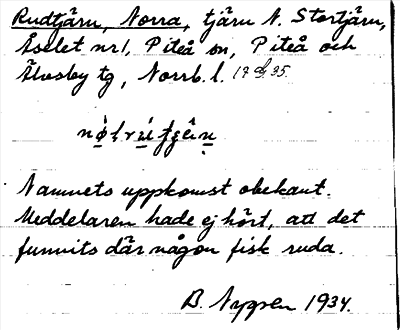 Rudtjärn, Norra, tjärn N. Stortjärn,
Åselet nr 1, Piteå sn, Piteå och
Älvsby tg, Norrb. l.
Namnets uppkomst obekant.
Meddelaren hade ej hört, att det
funnits där någon fisk ruda.
B. Nygren 1934.